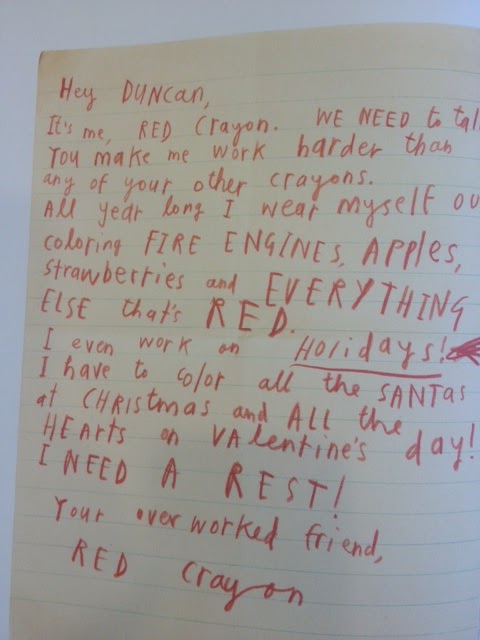 Hey DUNCan,
It's me, RED Crayon. WE NEED to tal
You make me work harder than
any of your other crayons.
All year long I wear myself ou
coloring FIRE ENGINES, Apples,
strawberries and EVERYTHING
ELSE that's RED.
I even work on Holidays!
I have to color all the SANTAs
at CHRIStmas and ALL the
HEArts on VAlentine's day!
I NEED A REST!
Your overworked friend,
RED Crayon